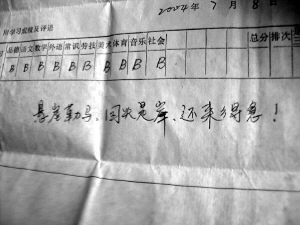 2004年7月8日
学习成绩及评语
品德 语文 数学 外语 常识 劳技 美术 体育 音乐 社会 总分 排次
B B B B B B B B B B
悬崖勤马、回头是岸、还来得急！